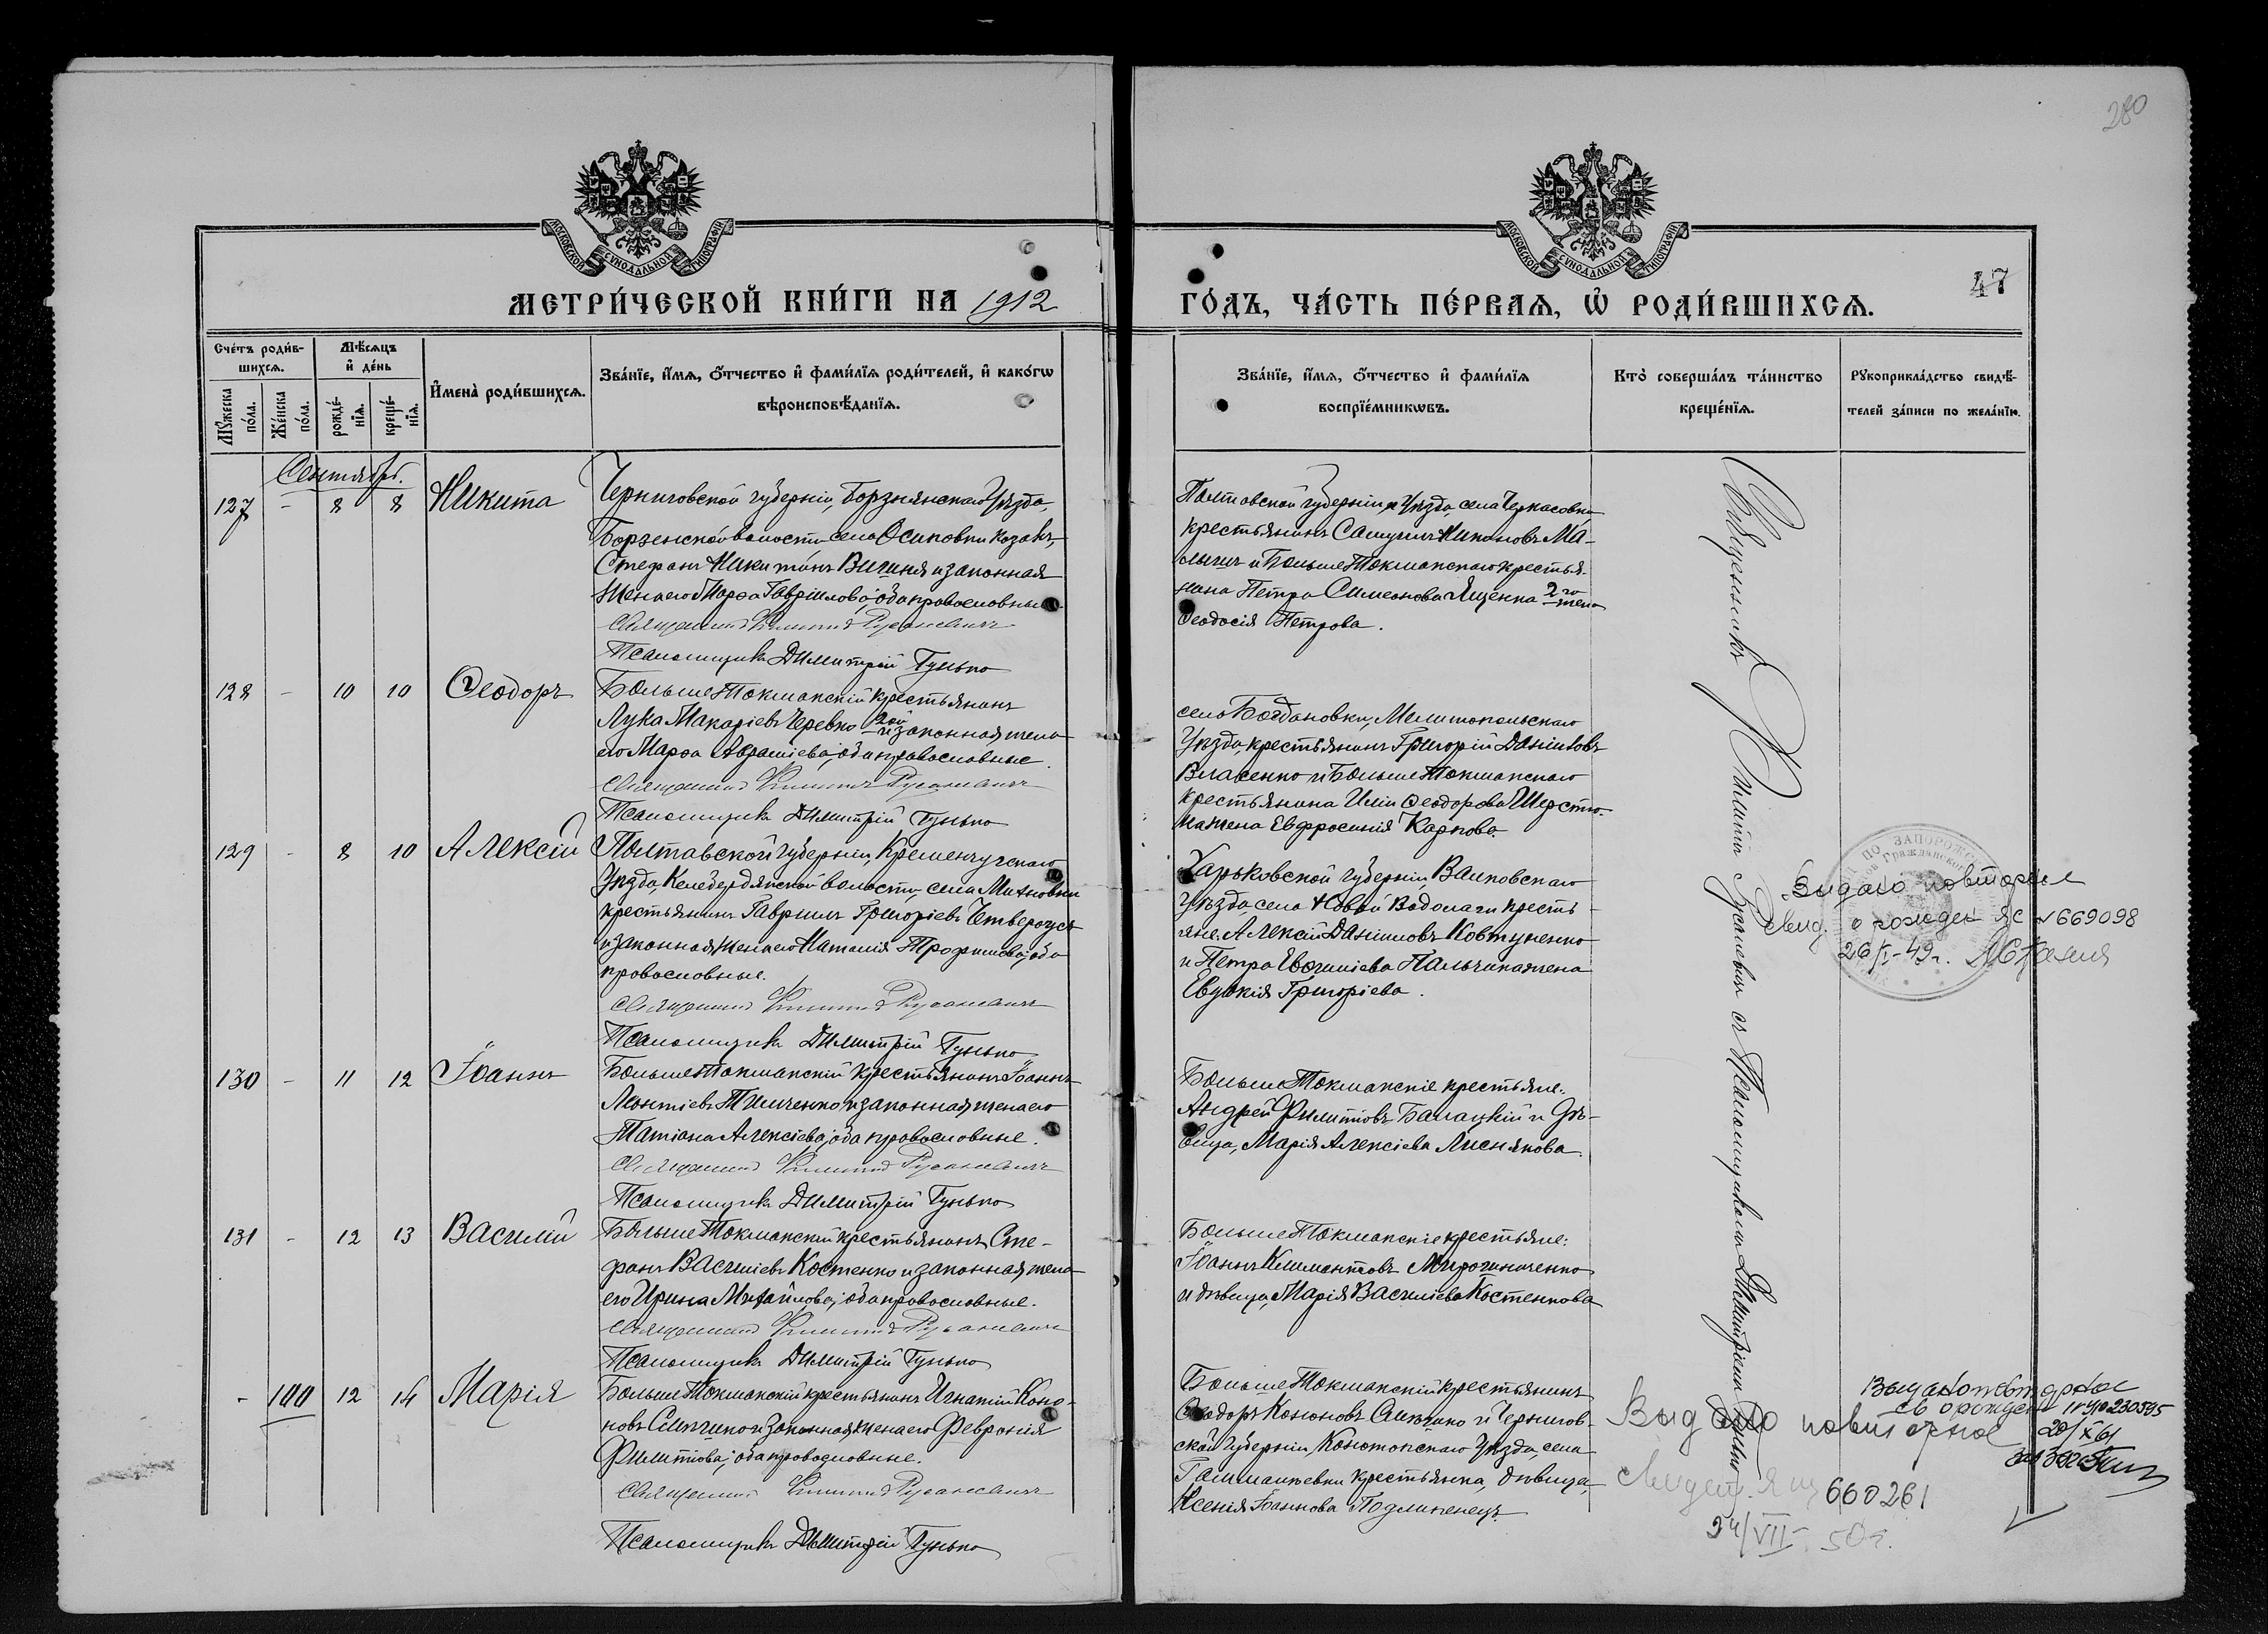 280
МОСКОВСКОЙ СУНОДАЛЬНОЙ ТИПОГРАФІИ
МОСКОВСКОЙ СУНОДАЛЬНОЙ ТИПОГРАФІИ
47
МЕТРИ́ЧЕСКОЙ КНИ́ГИ НА 1912
ГО́ДЪ, ЧА́СТЬ ПЕ́РВАѦ, Ѿ РОДИ́ВШИХСѦ.
Сче́тъ роди́в-
шихсѧ.
Мѣ́сѧцъ
и҆ де́нь
Мꙋ́жеска
по́ла.
Же́нска
по́ла.
рожде́-
нїѧ.
креще́-
нїѧ.
И҆мена̀ роди́вшихсѧ.
Зва́нїе, и҆́мѧ, ѻ҆́тчество и҆ фами́лїѧ роди́телей, и҆ како́гѡ
вѣроисповѣ́данїѧ.
Зва́нїе, и҆́мѧ, ѻ҆́тчество и҆ фами́лїѧ
воспрїе́мникѡвъ.
Кто̀ соверша́лъ та́инство
креще́нїѧ.
Рꙋкоприкла́дство свидѣ́-
телей за́писи по жела́нїю.
Сентябрь.
127 - 8 8 Никита
Черниговской губерніи, Борзнянскаго Уѣзда,
Борзенской волости, села Осиповки козакъ
Стефанъ Никитинъ Вигиня и законная
жена его Марѳа Гавріилова, оба православные.
Священникъ Филиппъ Русаневичъ
Псаломщикъ Димитрій Гунько
Полтавской губерніи и Уѣзда, села Черкасовки
крестьянинъ Самуилъ Никоновъ Ма-
лыгин и Больше Токмакскаго крестья-
нина Петра Симеонова Ященка 2го жена
Ѳеодосія Петрова.
128 - 10 10 Ѳеодоръ
Больше Токмакскій крестьянинъ
Лука Макаріевъ Черевко 2ой и законная жена
его Марѳа Аврамiева, оба православные.
Священникъ Филиппъ Русаневичъ
Псаломщикъ Димитрій Гунько
села Богдановки, Мелитопольскаго
Уѣзда, крестьянинъ Григорій Даніиловъ
Власенко и Больше Токмакскаго
крестьянина Иліи Ѳеодорова Шерсто-
ма жена Евфросинія Карпова.
129 - 8 10 Алексій
Полтавской губерніи, Кременчугскаго
Уѣзда, Келебердянской волости, села Михновки
крестьянинъ Гавріилъ Григоріевъ Четверусъ
и законная жена его Наталія Трофимова, оба
православные.
Священникъ Филиппъ Русаневичъ
Псаломщикъ Димитрій Гунько
Харьковской губерніи, Валковскаго
Уѣзда, села Новой Водолаги кресть-
яне: Алексій Даніиловъ Ковтуненко
и Петра Евѳиміева Пальчика жена
Евдокія Григоріева.
Выдано повторное
свид. о рожден ЯС № 669098
26/I-49г.
130 - 11 12 Іоаннъ
Больше Токмакскій крестьянинъ Іоаннъ
Леонтіевъ Тимченко и законная жена его
Татіана Алексіева, оба православные.
Священникъ Филиппъ Русаневичъ
Псаломщикъ Димитрій Гунько
Больше Токмакскіе крестьяне:
Андрей Филипповъ Балацкій и дѣ-
вица, Марія Алексіева Леснякова.
131 - 12 13 Василій
Больше Токмакскій крестьянинъ Сте-
фанъ Василіевъ Костенко и законная жена
его Ирина Михайлова, оба православные.
Священникъ Филиппъ Русаневичъ
Псаломщикъ Димитрій Гунько
Больше Токмакскіе крестьяне:
Іоаннъ Климентовъ Мирошниченко
и дѣвица, Марія Василіева Костенкова
- 100 12 14 Марія
Больше Токмакскій крестьянинъ Игнатій Коно-
новъ Слипченко и законная жена его Февронія
Филиппова, оба православные.
Священникъ Филиппъ Русаневичъ
Псаломщикъ Димитрій Гунько
Больше Токмакскій крестьянинъ
Ѳеодоръ Кононовъ и Чернигов-
ской губерніи, Конотопскаго Уѣзда, села
крестьянка, дѣвица,
Ксенія Іоаннова Подлипенецъ.
Священникъ Филиппъ Русаневичъ съ Псаломщикомъ Димитріемъ Гунько
Выдано повторное
Свидет. 660261
24/VII- 50г.
Выдано повторное
св о рожден 230595
20/X 61